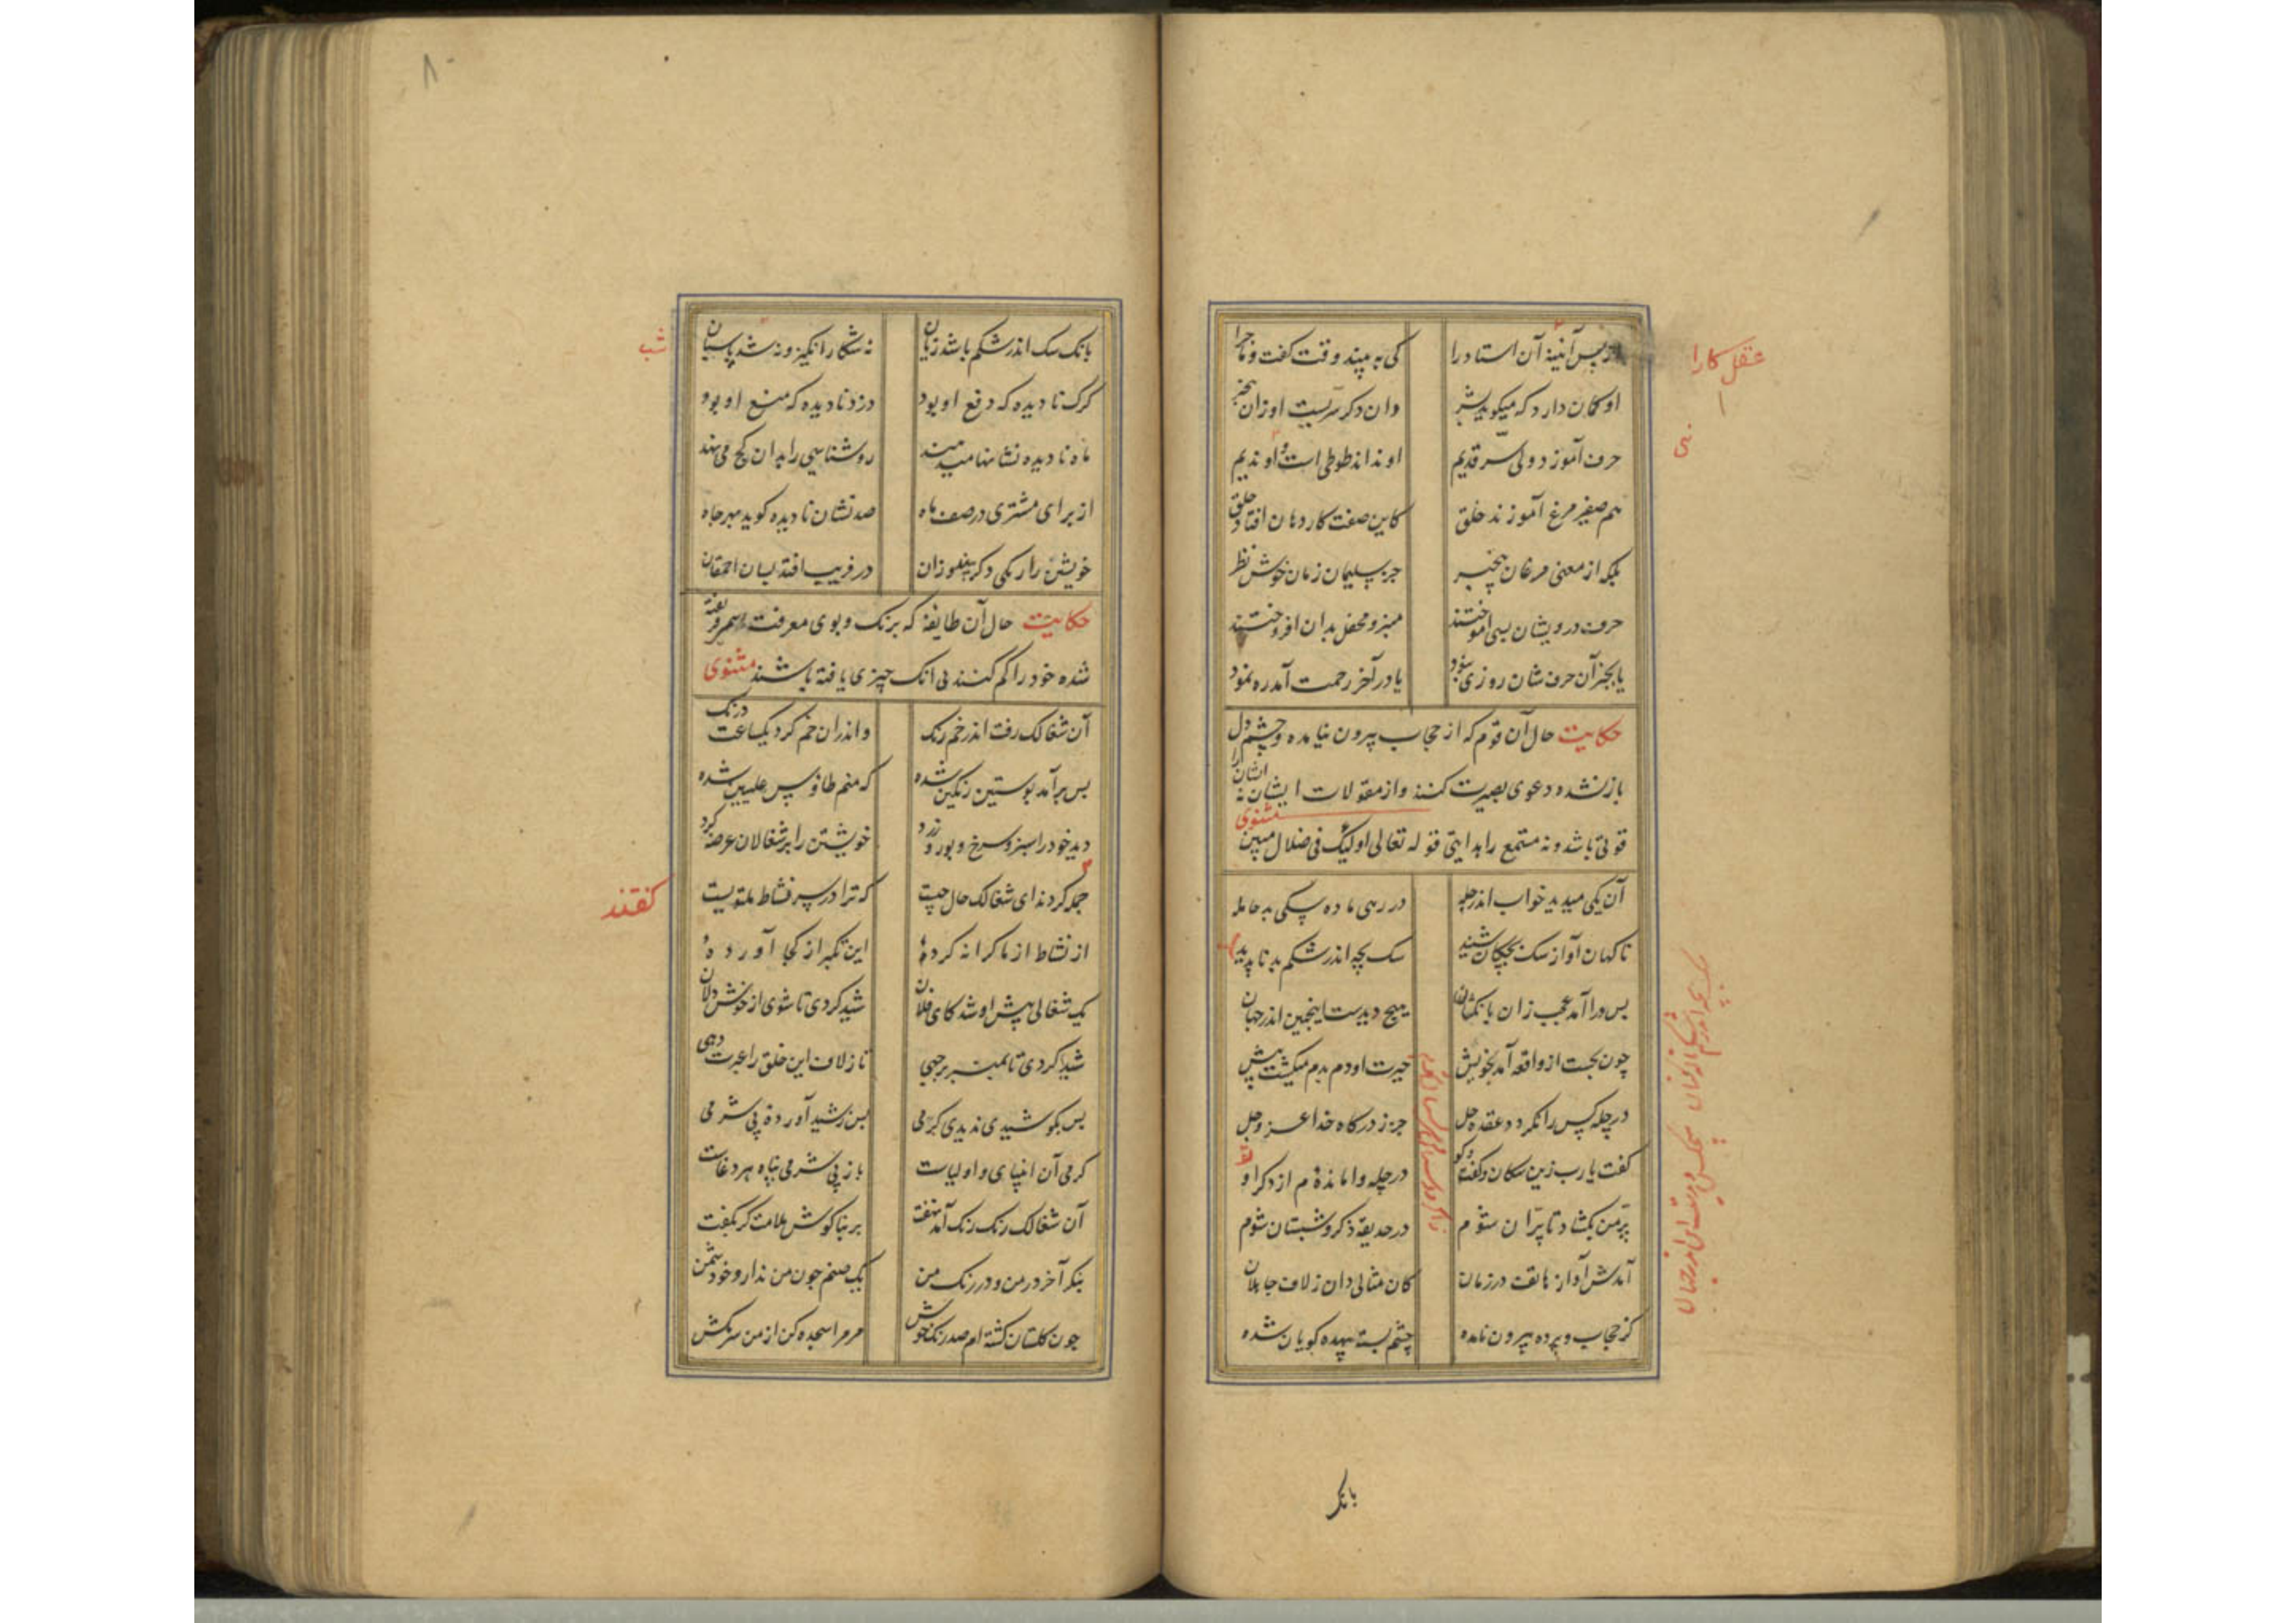 از پس آئینه آن استاد را کی به بیند وقت گفت و ماجرا
او گمان دارد که میگوید بشر وان دگر سرّیست او زان بیخبر
حرف آموزد ولی سرّ قدیم او نداند طوطی است او ندیم
هم صفیر مرغ آموزند خلق کاین صفت کار دهان افتاد و حلق
لیکه از معنی مرغان بیخبر جز سلیمان زمان خوش نظر
حرف درویشان بسی آموختند منبر و محفل بدان افروختند
یا بجز آن حرفشان روزی نبود یا در آخر رحمت آمد ره نمود
حکایت حال آن قوم که از حجاب بیرون نیامده و چشم دل
باز نشده دعوی بصیرت کنند و از مقولات ایشان نه ایشان را
قوتی باشد و نه مستمع را هدایتی قوله تعالی اولئک فی ضلال مبین مثنوی
آن یکی میدید خواب اندر چله در رهی ماده سگی بد حامله
ناکهان آواز سک بچگان شنید سک بچه اندر شکم بد ناپدید
بس ورا آمد عجب زان بانکشان هیچ دیدست اینچنین اندر جهان
چون بجست از واقعه آمد بخویش حیرت او دم بدم میکشت بیش
در چله کس را نکردد عقده حل جز ز درکاه خدا عز و جل
کفت یارب زین سکان و کفت و کو در چله وامانده ام از ذکر او
پر من بکشاد تا پران شوم در حدیقه ذکر و شبستان شوم
آمدش آواز هاتف در زمان کان مثالی دان ز لاف جاهلان
کز حجاب و پرده بیرون نامده چشم بسته بیهده کویان شده
عقل کل را
نی
بانک
۸۰
بانک سک اندر شکم باشد زیان نه شکار انکیز و نه شد پاسبان
کرک نادیده که دفع او بود دزد نادیده که منع او بود
ماه نادیده نشانها میدهند روشنایی را بدان کج می نهند
از برای مشتری در صف ماه صد نشان نادیده کوید بهر جاه
خویشتن را
در فریب افتد بسان احمقان
حکایت حال آن طایفه که برنک و بوی معرفت
شده خود را کم کنند بی آنک چیزی یافته باشند مثنوی
آن شغالک رفت اندر خم رنک واندران خم کرد یکساعت درنک
بس برآمد پوستین رنکین شده که منم طاوس علیین شده
دید خود را سبز و سرخ و بور و زرد خویشتن را بر شغالان عرضه کرد
جمله کردند ای شغالک حال چیست که ترا در سر نشاط ملتویست
از نشاط از ما کرانه کردهٔ این تکبر از کجا آوردهٔ
یک شغالی پیش او شد کای فلان شید کردی تا شوی از خوش دلان
شید کردی تا بمنبر برجهی تا ز لاف این خلق را عبرت دهی
بس بکوشیدی ندیدی کرمی بس ز شید آوردهٔ بی شرمی
کرمی آن انبیای و اولیاست باز بی شرمی پناه هر دغاست
آن شغالک رنک رنک آمد نهفت بر بناکوش ملامت کر بکفت
بنکر آخر در من و در رنک من یک صنم چون من ندارد خود شمن
چون کلستان کشته ام صد رنک خوش مر مرا سجده کن از من سر مکش
شب
کفتند